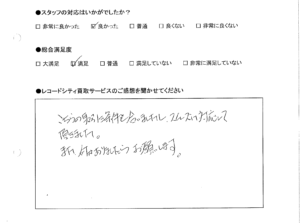 ●スタッフの対応はいかがでしたか？
□ 非常に良かった ☑ 良かった □ 普通 □ 良くない □ 非常に良くない
●総合満足度
□ 大満足 ☑ 満足 □ 普通 □ 満足していない □ 非常に満足していない
●レコードシティ買取サービスのご感想を聞かせてください
こちらの
スムーズに対応して
頂きました。
また お願いします。